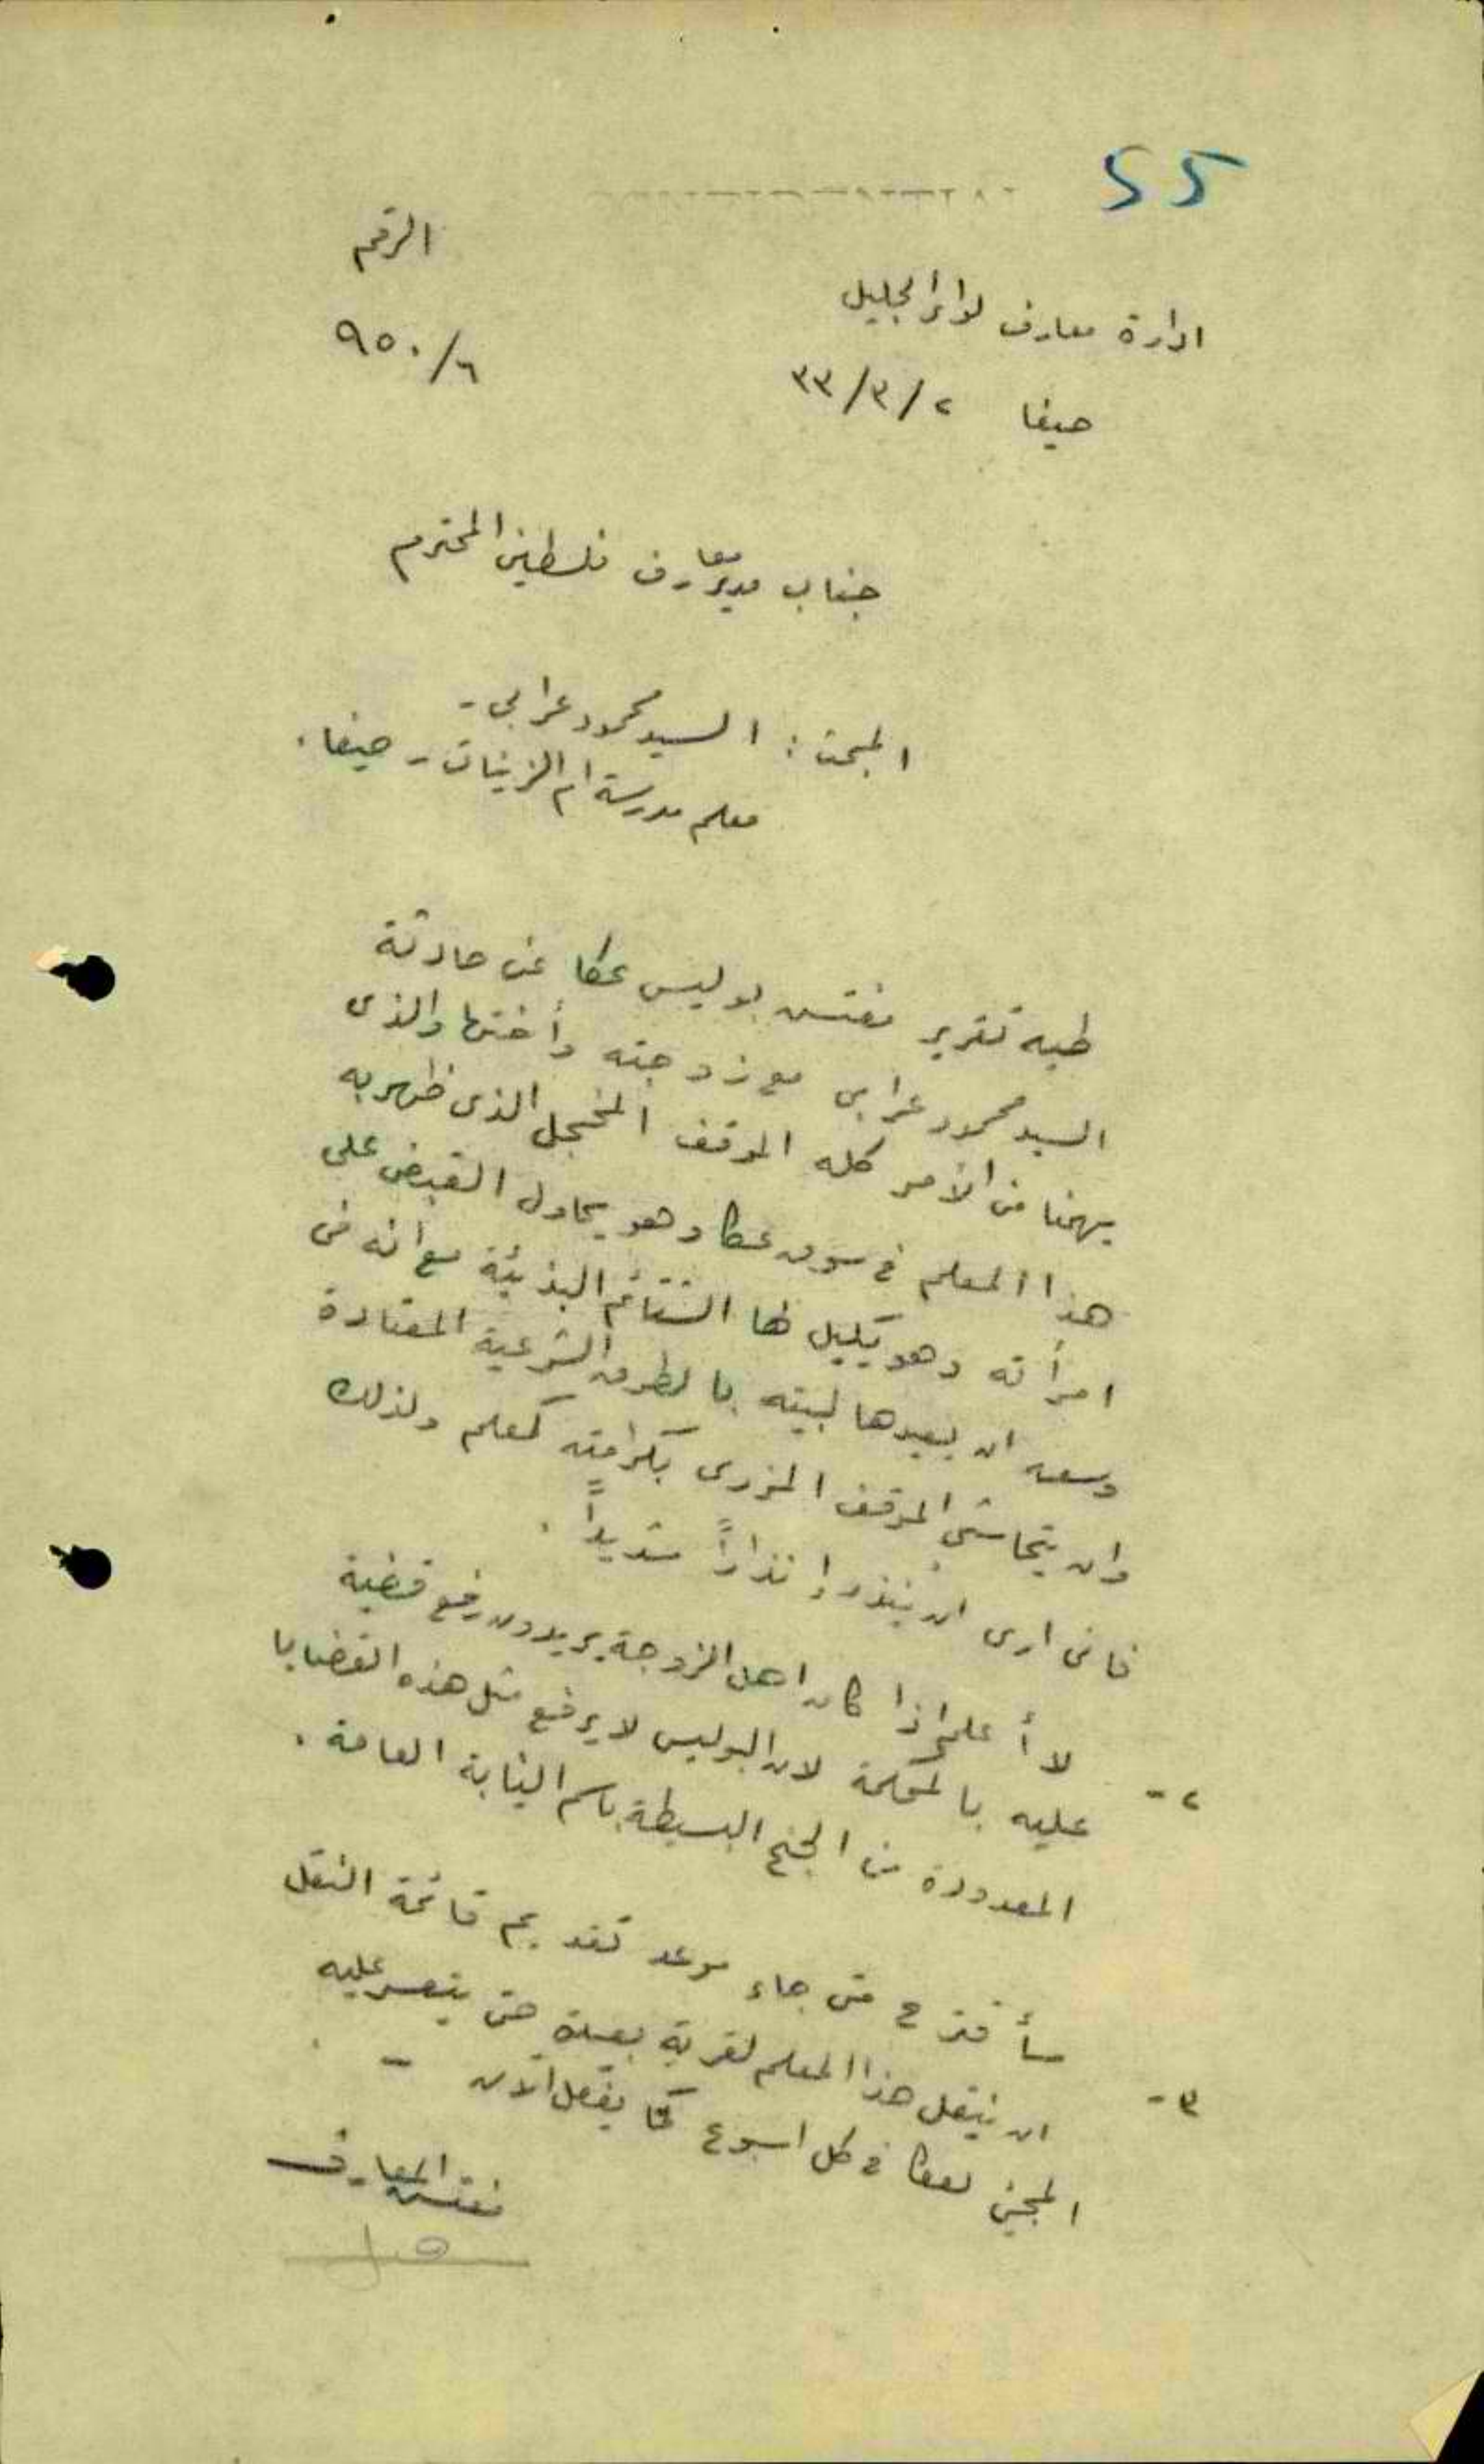 55
الرقم
ادارة معارف لواء الجليل
٦/٩٥٠
حيفا ٢/٣/٣٣
جناب مدير معارف فلسطين المحترم
المبحث : السيد محمود عرابي -
معلم مدرسة ام الزينات - حيفا .
طيه تقرير مفتش بوليس عكا عن حادثة
السيد محمود عرابي مع زوجته وأختها والذي
يهمنا من الأمر كله الموقف المخجل الذي ظهر به
هذا المعلم في سوق عكا وهو يحاول القبض على
امرأته وهو يكيل لها الشتائم البذيئة مع انه في
وسعه ان يعيدها لبيته بالطرق الشرعية المعتادة
وان يتحاشى الموقف المزري بكرامته كمعلم ولذلك
فاني ارى ان ينذر إنذاراً شديداً .
٢- لا أعلم اذا كان اهل الزوجة يريدون رفع قضية
عليه بالمحكمة لان البوليس لا يرفع مثل هذه القضايا
المعدودة من الجنح البسيطة باسم النيابة العامة .
٣- سأقترح متى جاء موعد تقديم قائمة النقل
ان ينقل هذا المعلم لقرية بعيدة حتى يتعسر عليه
المجئ لعكا في كل اسبوع كما يفعل الآن -
مفتش المعارف